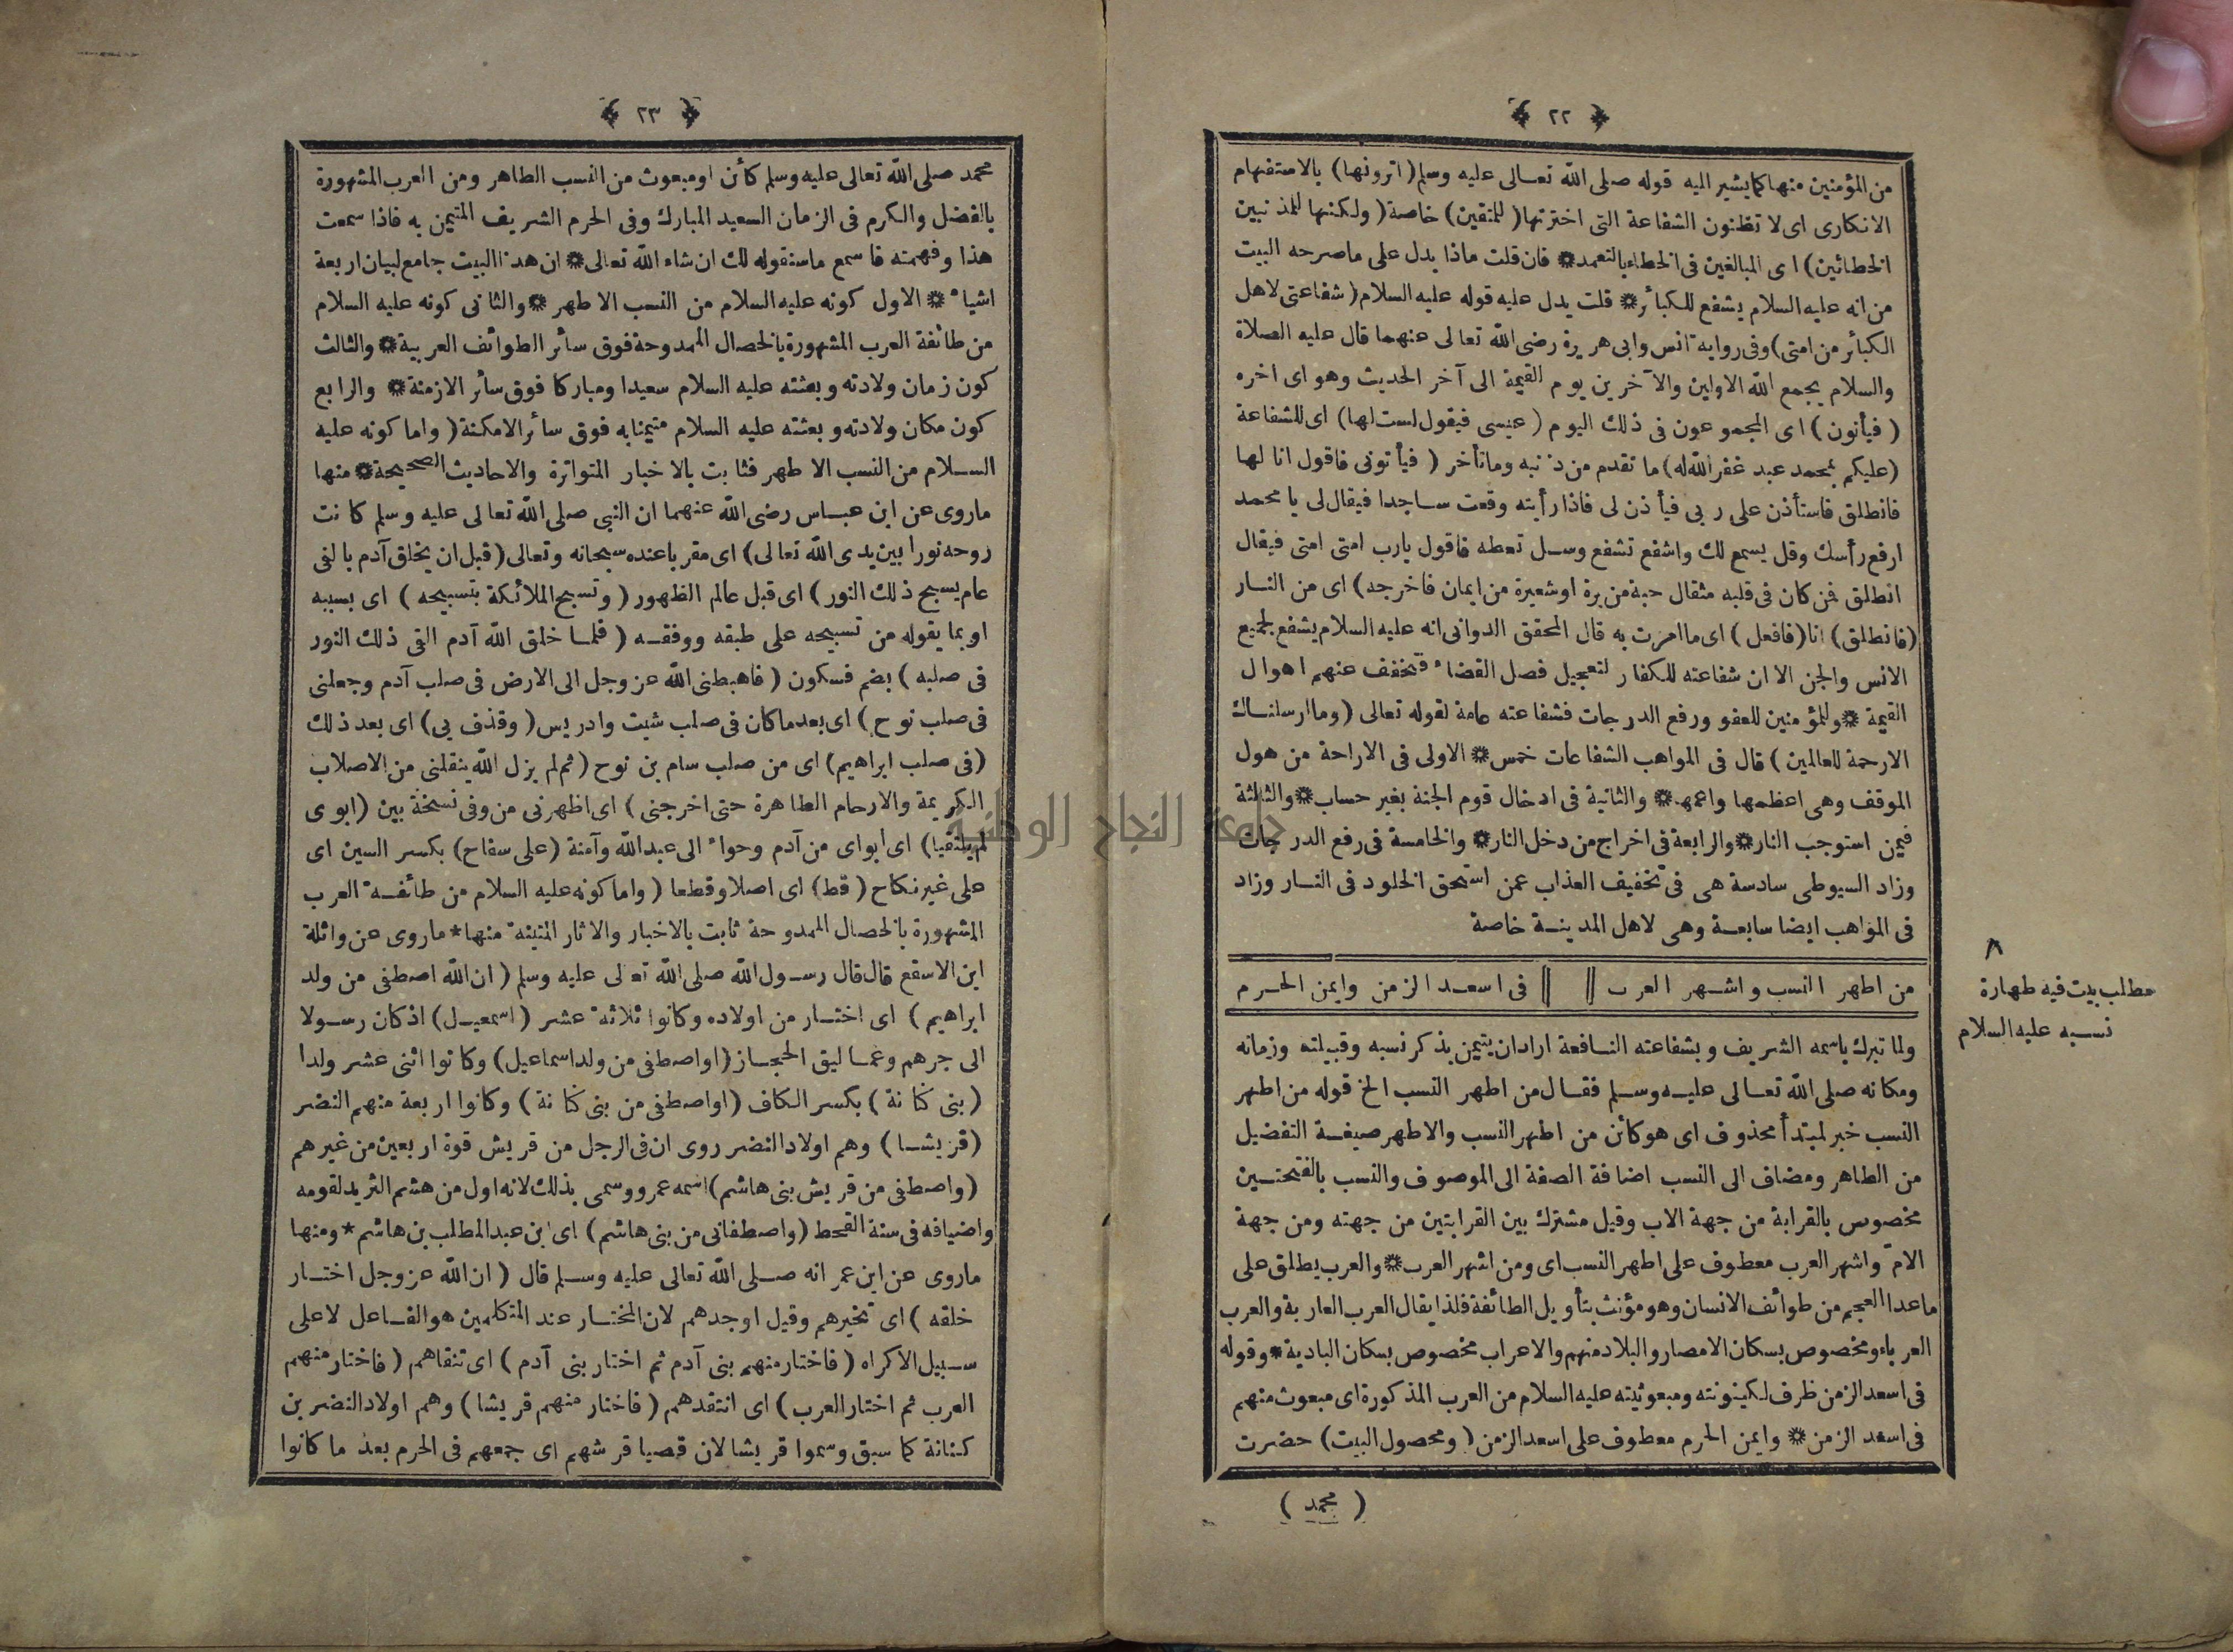 ﴿ ٢٢ ﴾
من المؤمنين منها كما يشير اليه قوله صلى الله تعالى عليه وسلم ( اترونها ) بالاستفهام
الانكارى اى لا تظنون الشفاعة التى اخترتها ( للمتقين ) خاصة ( ولكنها للمذنبين
الخطائين ) اى المبالغين فى الخطاء بالتعمد * فان قلت ماذا يدل على ماصرحه البيت
من انه عليه السلام يشفع للكبائر * قلت يدل عليه قوله عليه السلام ( شفاعتى لاهل
الكبائر من امتى ) وفى رواية انس وابى هريرة رضى الله تعالى عنهما قال عليه الصلاة
والسلام يجمع الله الاولين والآخرين يوم القيمة الى آخر الحديث وهو اى اخره
( فيأتون ) اى المجموعون فى ذلك اليوم ( عيسى فيقول لست لها ) اى للشفاعة
( عليكم بمحمد عبد غفر الله له ) ما تقدم من ذنبه وما تأخر ( فيأتونى فاقول انا لها
فانطلق فاستأذن على ربى فيأذن لى فاذا رأيته وقعت ساجدا فيقال لى يا محمد
ارفع رأسك وقل يسمع لك واشفع تشفع وسل تعطه فاقول يارب امتى امتى فيقال
انطلق فمن كان فى قلبه مثقال حبة من برة او شعيرة من ايمان فاخرجه ) اى من النار
( فانطلق ) انا ( فافعل ) اى ما امرت به قال المحقق الدوانى انه عليه السلام يشفع لجميع
الانس والجن الا ان شفاعته للكفار لتعجيل فصل القضاء فتخفف عنهم اهوال
القيمة * وللمؤمنين للعفو ورفع الدرجات فشفاعته عامة لقوله تعالى ( وما ارسلناك
الا رحمة للعالمين ) قال فى المواهب الشفاعات خمس * الاولى فى الاراحة من هول
الموقف وهى اعظمها واعمها * والثانية فى ادخال قوم الجنة بغير حساب * والثالثة
فيمن استوجب النار * والرابعة فى اخراج من دخل النار * والخامسة فى رفع الدرجات
وزاد السيوطى سادسة هى فى تخفيف العذاب عمن استحق الخلود فى النار وزاد
فى المواهب ايضا سابعة وهى لاهل المدينة خاصة
من اطهر النسب واشهر العرب || || فى اسعد الزمن وايمن الحرم
مطلب بيت فيه طهارة
نسبه عليه السلام
ولما تبرك باسمه الشريف وبشفاعته النافعة اراد ان يتيمن بذكر نسبه وقبيلته وزمانه
ومكانه صلى الله تعالى عليه وسلم فقال من اطهر النسب الخ قوله من اطهر
النسب خبر لمبتدأ محذوف اى هو كائن من اطهر النسب والاطهر صيغة التفضيل
من الطاهر ومضاف الى النسب اضافة الصفة الى الموصوف والنسب بالفتحتين
مخصوص بالقرابة من جهة الاب وقيل مشترك بين القرابتين من جهته ومن جهة
الام واشهر العرب معطوف على اطهر النسب اى ومن اشهر العرب * والعرب يطلق على
ماعدا العجم من طوائف الانسان وهو مؤنث بتأويل الطائفة فلذا يقال العرب العاربة والعرب
العرباء ومخصوص بسكان الامصار والبلاد منهم والاعراب مخصوص بسكان البادية * وقوله
فى اسعد الزمن ظرف لكينونته ومبعوثيته عليه السلام من العرب المذكورة اى مبعوث منهم
فى اسعد الزمن * وايمن الحرم معطوف على اسعد الزمن ( ومحصول البيت ) حضرت
( محمد )
﴿ ٢٣ ﴾
محمد صلى الله تعالى عليه وسلم كائن او مبعوث من النسب الطاهر ومن العرب المشهورة
بالفضل والكرم فى الزمان السعيد المبارك وفى الحرم الشريف المتيمن به فاذا سمعت
هذا وفهمته فاسمع ما سنقوله لك ان شاء الله تعالى * ان هذا البيت جامع لبيان اربعة
اشياء * الاول كونه عليه السلام من النسب الاطهر * والثانى كونه عليه السلام
من طائفة العرب المشهورة بالخصال الممدوحة فوق سائر الطوائف العربية * والثالث
كون زمان ولادته وبعثته عليه السلام سعيدا ومباركا فوق سائر الازمنة * والرابع
كون مكان ولادته وبعثته عليه السلام متيمنا به فوق سائر الامكنة ( واما كونه عليه
السلام من النسب الاطهر فثابت بالاخبار المتواترة والاحاديث الصحيحة * منها
ماروى عن ابن عباس رضى الله عنهما ان النبى صلى الله تعالى عليه وسلم كانت
روحه نورا بين يدى الله تعالى ) اى مقربا عنده سبحانه وتعالى ( قبل ان يخلق آدم بالفى
عام يسبح ذلك النور ) اى قبل عالم الظهور ( وتسبح الملائكة بتسبيحه ) اى بسببه
او بما يقوله من تسبيحه على طبقه ووفقه ( فلما خلق الله آدم القى ذلك النور
فى صلبه ) بضم فسكون ( فاهبطنى الله عز وجل الى الارض فى صلب آدم وجعلنى
فى صلب نوح ) اى بعد ما كان فى صلب شيت وادريس ( وقذف بى ) اى بعد ذلك
( فى صلب ابراهيم ) اى من صلب سام بن نوح ( ثم لم يزل الله ينقلنى من الاصلاب
الكريمة والارحام الطاهرة حتى اخرجنى ) اى اظهرنى من وفى نسخة بين ( ابوى
لم يلتقيا ) اى ابواى من آدم وحواء الى عبد الله وآمنة ( على سفاح ) بكسر السين اى
على غير نكاح ( قط ) اى اصلا وقطعا ( واما كونه عليه السلام من طائفة العرب
المشهورة بالخصال الممدوحة ثابت بالاخبار والاثار المتينة منها * ماروى عن واثلة
ابن الاسقع قال قال رسول الله صلى الله تعالى عليه وسلم ( ان الله اصطفى من ولد
ابراهيم ) اى اختار من اولاده وكانوا ثلاثة عشر ( اسمعيل ) اذ كان رسولا
الى جرهم وعماليق الحجاز ( واصطفى من ولد اسماعيل ) وكانوا اثنى عشر ولدا
( بنى كنانة ) بكسر الكاف ( واصطفى من بنى كنانة ) وكانوا اربعة منهم النضر
( قريشا ) وهم اولاد النضر روى ان فى الرجل من قريش قوة اربعين من غيرهم
( واصطفى من قريش بنى هاشم ) اسمه عمرو وسمى بذلك لانه اول من هشم الثريد لقومه
واضيافه فى سنة القحط ( واصطفانى من بنى هاشم ) اى ابن عبد المطلب بن هاشم * ومنها
ماروى عن ابن عمر انه صلى الله تعالى عليه وسلم قال ( ان الله عز وجل اختار
خلقه ) اى تخيرهم وقيل اوجدهم لان المختار عند المتكلمين هو الفاعل لا على
سبيل الاكراه ( فاختار منهم بنى آدم ثم اختار بنى آدم ) اى تنقاهم ( فاختار منهم
العرب ثم اختار العرب ) اى انتقدهم ( فاختار منهم قريشا ) وهم اولاد النضر بن
كنانة كما سبق وسموا قريشا لان قصيا قرشهم اى جمعهم فى الحرم بعد ما كانوا
جامعة النجاح الوطنية